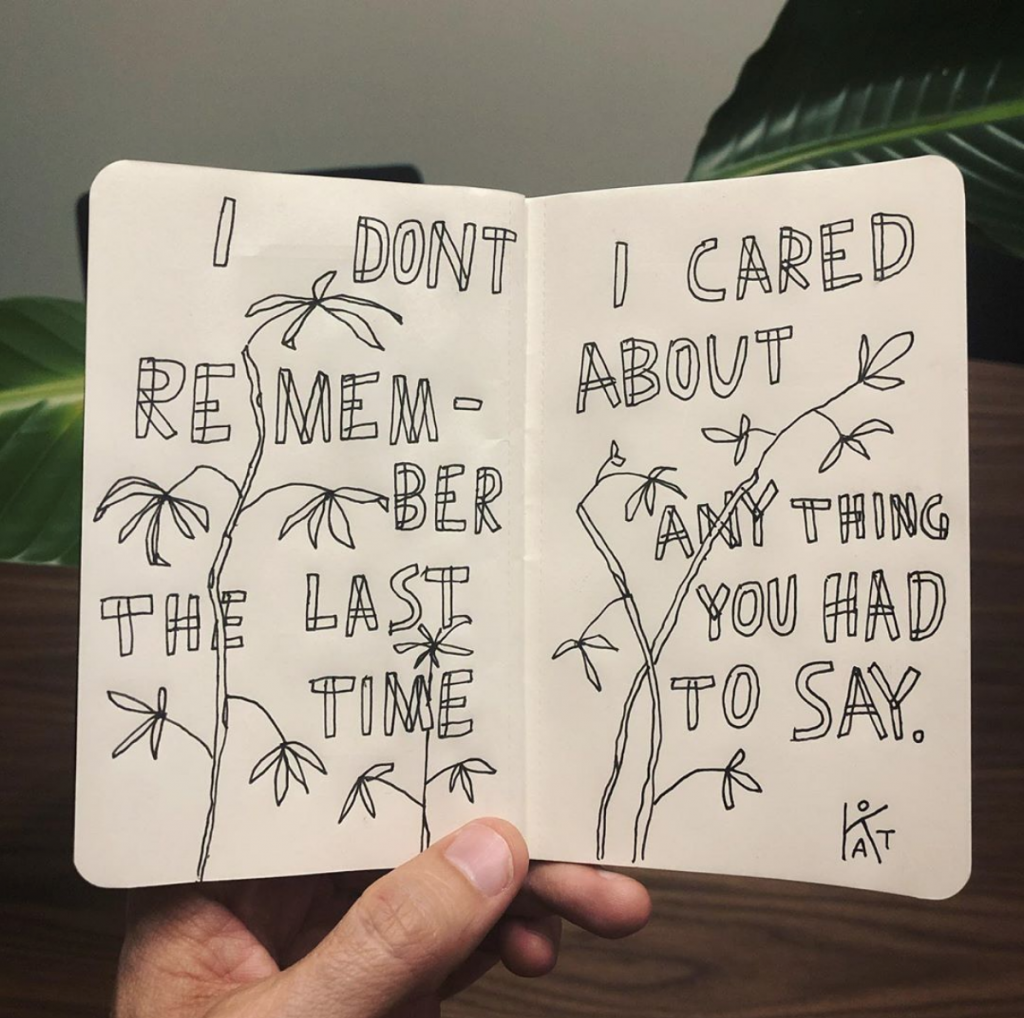 I DONT
REMEM-
BER
THE LAST
TIME
I CARED
ABOUT
ANYTHING
YOU HAD
TO SAY.
KAT